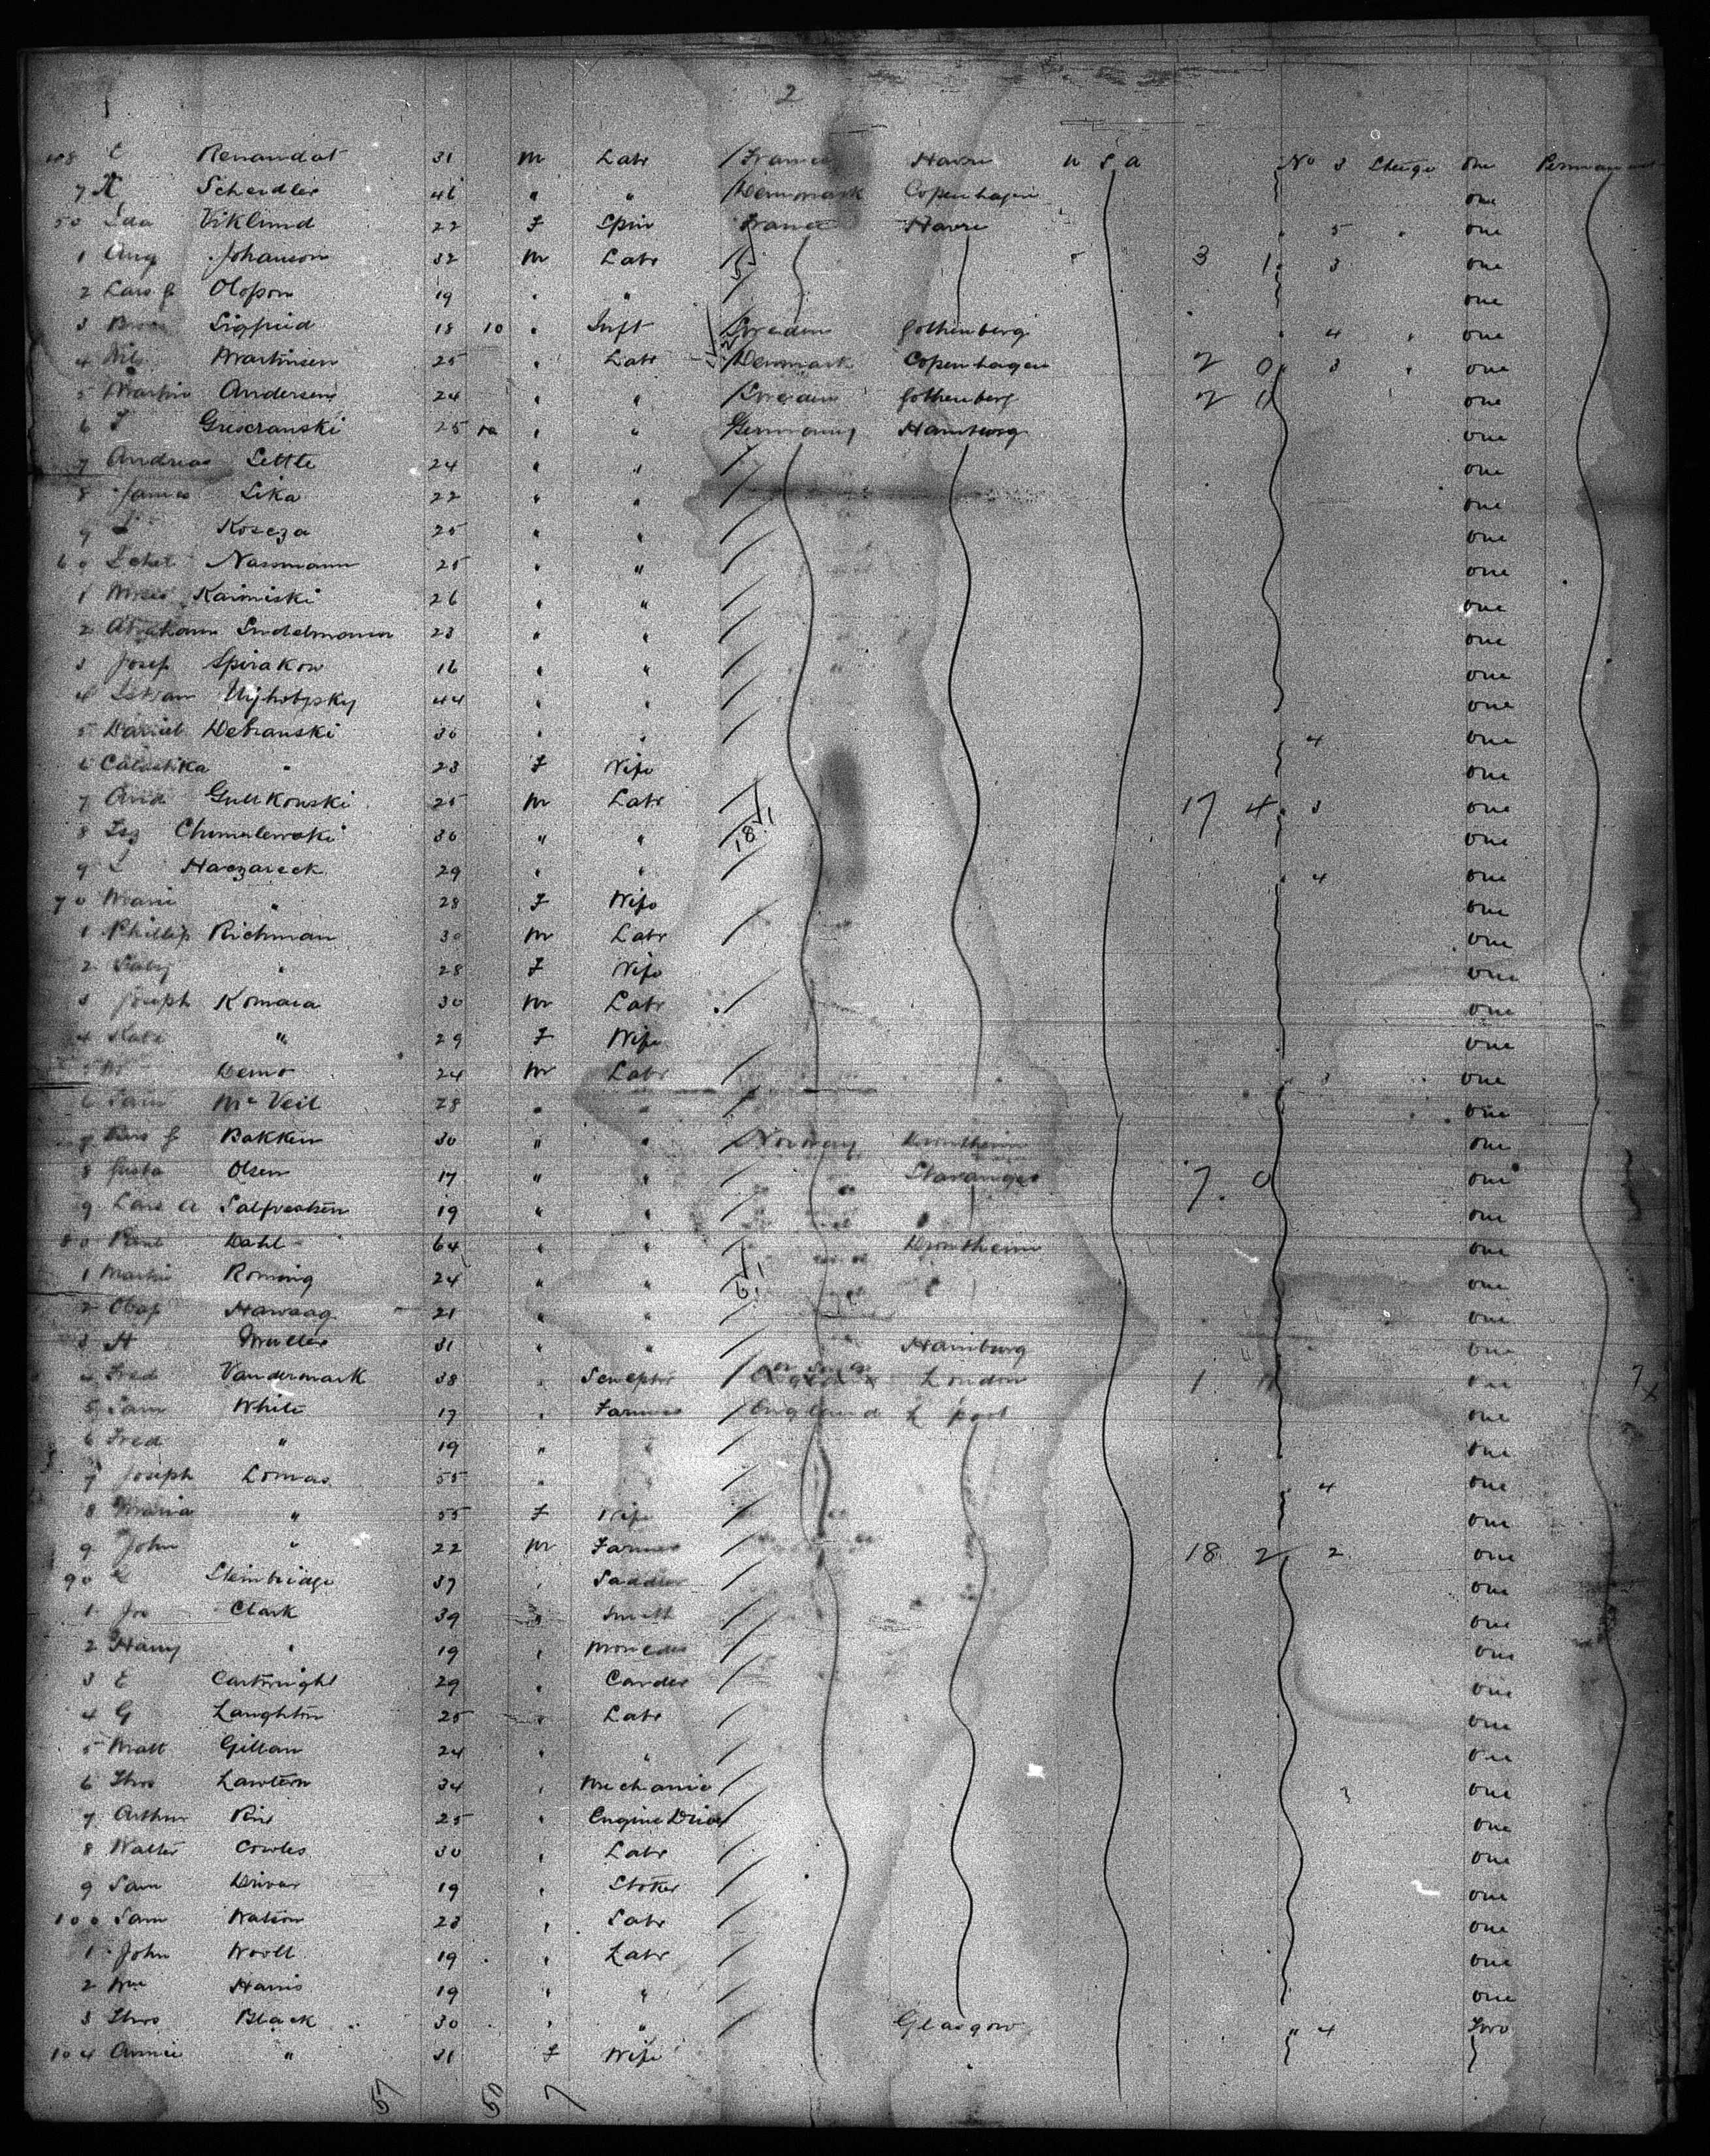 2
C Renaudat 31 m Labr France Havre U S A No 3 Steige One Permanent
7 Schendler 46 " " Denmark Copenhagen one
50 Ida Viklund 22 F Spin France Havre " 5 " one
1 Aug Johanson 32 m Labr 3 1 " 3 one
2 Lars J Olofson 19 " " one
3 Sigfrid 18 10 " Sweden Gothenberg " 4 " one
4 Nils Martinsen 25 " Labr Denmark Copenhagen 2 0 " 3 " one
5 Martin Andersen 24 " " Sweden Gothenberg 2 1 one
6 25 10 " " Germany Hamburg one
7 Andreas Lette 24 " " one
8 James Lika 22 " " one
9 Koscza 25 " " one
60 Nassmann 25 " " one
1 Moses Kaimiski 26 " " one
2 Abraham 23 " " one
3 Josef Spirakow 16 " " one
4 Istvan 44 " " one
5 Daniel Detranski 30 " " " 4 one
6 " 23 F Wife one
7 Gullkowski 25 m Labr 17 4 " 3 one
8 Chmulewski 30 " " 18 1 one
9 L Haczareck 29 " " " 4 one
70 Marie " 28 F Wife one
1 Phillip Richman 30 m Labr one
2 " 28 F Wife one
3 Joseph Komara 30 m Labr one
4 Kate " 29 F Wife one
5 Demo 24 m Labr " 3 one
6 Sam Mc Veil 28 " " one
7 Bakken 30 " " Norway Drontheim one
8 Gusta Olsen 17 " " Stavanger 7 0 one
9 Lars A 19 " " one
80 Dahl 64 " " Drontheim one
1 Martin Roming 24 " " 6 1 one
2 Olaf Hawaag 21 " " one
3 H Muller 31 " " Hamburg one
4 Fred Vandermark 38 " London 1 one
5 Sam White 17 " Farmer England L pool one
6 Fred " 19 " " one
7 Joseph Lomas 55 " " " 4 one
8 Maria " 55 F Wife one
9 John " 22 m Farmer 18 2 " 2 one
90 Steinbridge 37 " Saddler one
1 Jos Clark 39 " Smith one
2 Harry " 19 " Moulder one
3 E Cartwright 29 " Carder one
4 G Laughton 25 " Labr one
5 Matt Gillan 24 " " one
6 Thos Lawton 34 " Mechanic one
7 Arthur 25 " Engine Driver one
8 Walter Cowles 30 " Labr one
9 Sam Driver 19 " Stoker one
100 Sam Watson 23 " Labr one
1 John Wooll 19 " Labr one
2 Wm Harris 19 " " one
3 Thos Black 30 " " Glasgow " 4 Two
104 Annie " 31 F Wife
57 50 7